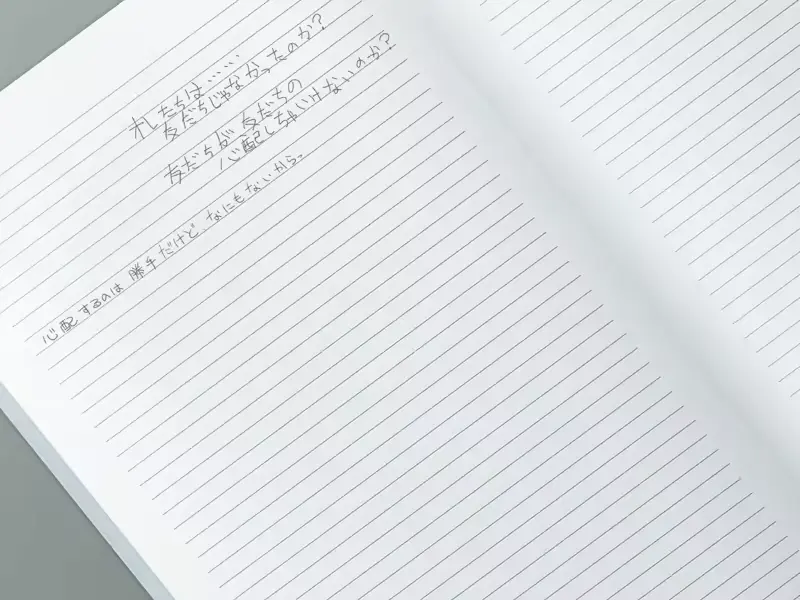 オレたちは……
友だちじゃなかったのか?
友だちが、友だちの
心配しちゃいけないのか?
心配するのは勝手だけど、なにもないから。